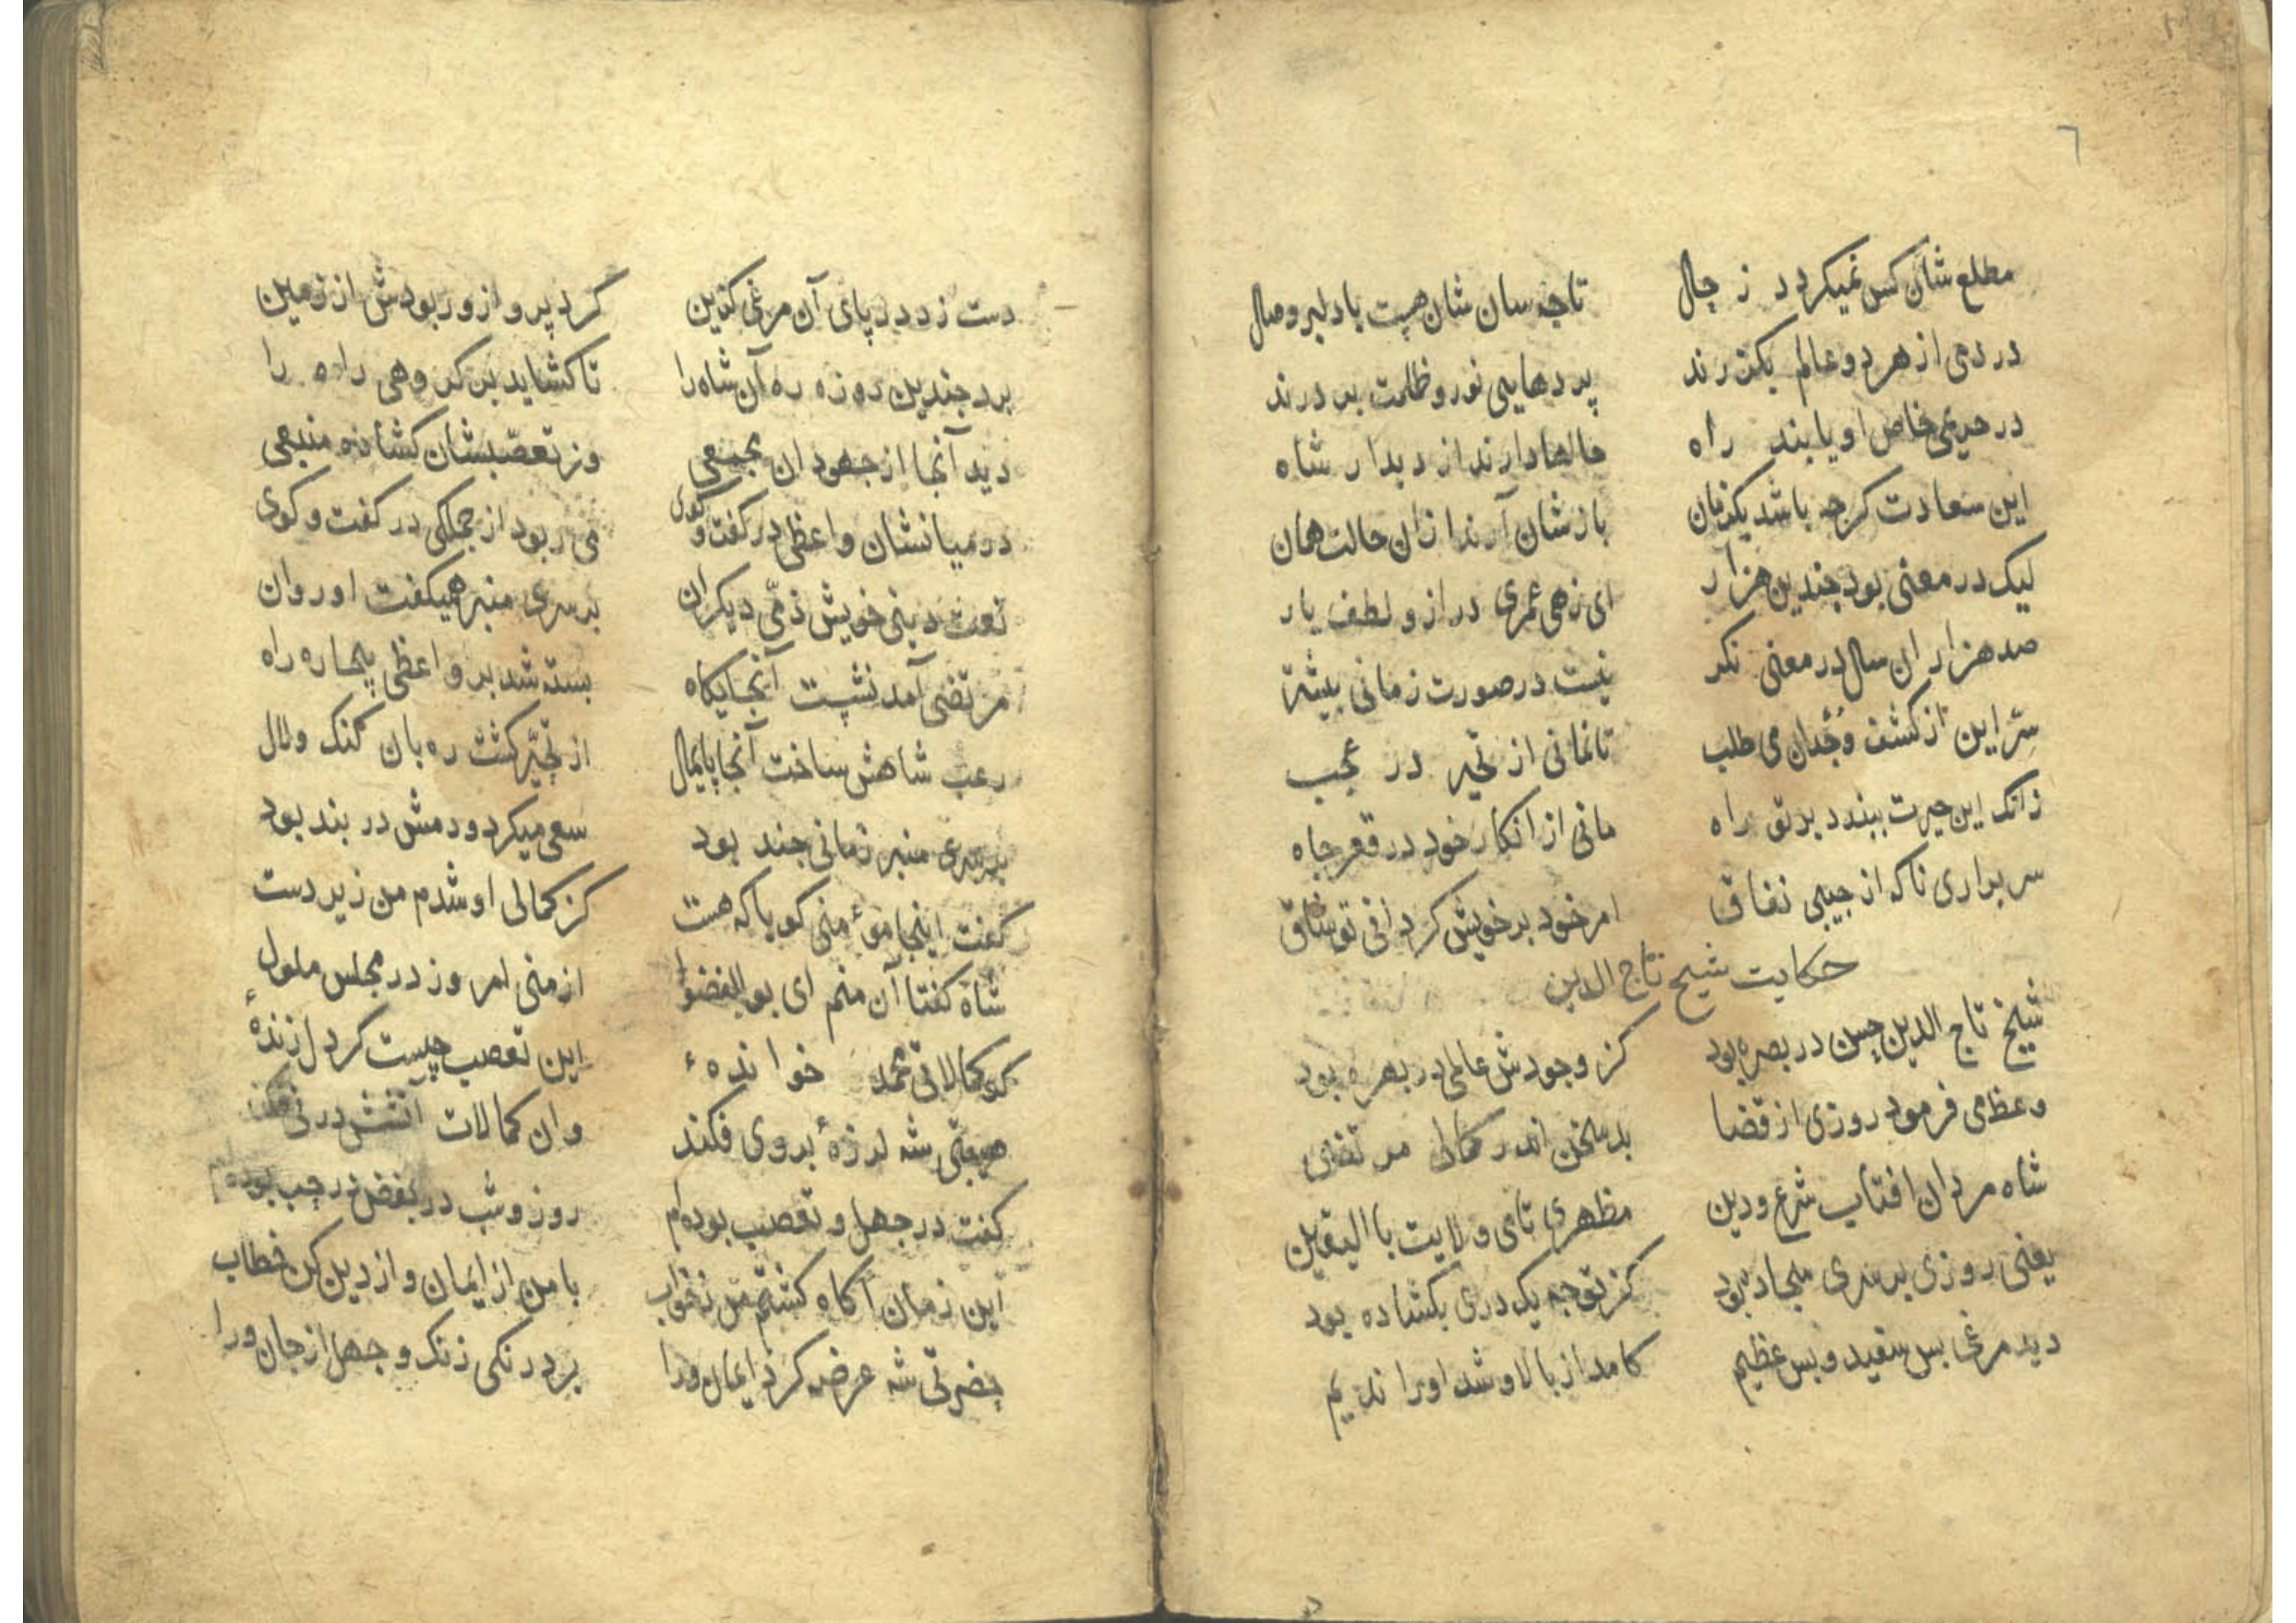 ٦
مطلع شان کس نمیکردد ز حال تاجه سان شان هست با دلبر وصال
در دمی از هر دو عالم بکذرند پردهایی نور و ظلمت بر درند
در حریمی خاص او یابند راه حالها دارند از دیدار شاه
این سعادت کرجه باشد یکزمان بازشان آرند ازان حالت همان
لیک در معنی بود جندین هزار ای زهی عمری دراز و لطف یار
صد هزاران سال در معنی نکر نیست در صورت زمانی بیشتر
سِرّ این از کشف وُجْدان می طلب تانمانی از تحیر در عجب
زانک این حیرت ببندد بر تو راه مانی از انکار خود در قعر جاه
سر براری ناکه از جیبی نفاق امر خود بر خویش کردانی تو شاق
حکایت شیخ تاج الدین
شیخ تاج الدین حسن در بصره بود کز وجودش عالمی در بهره بود
وعظ می فرمود روزی از قضا بد سخن اندر کمالی مرتضی
شاه مردان افتاب شرع و دین مظهری تامی ولایت با الیقین
یعنی روزی بر سری سجاده بود کز توجه یک دری بکشاده بود
دید مرغی بس سفید و بس عظیم کامد از بالا و شد اورا ندیم
دست زد در پای آن مرغی کزین کرد پرواز و ربودش از زمین
برد جندین روزه ره آن شاه را تا کشاید بر کروهی راه را
دید آنجا از جهودان مجمعی وز تعصّبشان کشاده منبعی
در میانشان واعظی در کفت و کوی می ربود از جملکی در کفت و کوی
نعت دینی خویش ذمّی دیکران بر سری منبر همیکفت او روان
مرتضی آمد نشست آنجایکاه بسته شد بر واعظی بیچاره راه
رعب شاهش ساخت آنجا پایمال از تحیّر کشت ره بان کنک و لال
بر سری منبر زمانی جند بود سعی میکرد و دمش در بند بود
کفت اینجا مؤمنی کویا که هست کز کمالی او شدم من زیر دست
شاه کفتا آن منم ای بو الفضول از منی امروز در مجلس ملول
کو کمالاتی محمد خوانده ء این تعصب چیست کر دل زندهٔ
هیبتی شه لرزهٔ بروی فکند وان کمالات آتشش در
کفت در جهل و تعصب بوده‌ام روز و شب در بغض در حجب بوده‌ام
این زمان آکاه کشتم من ز خواب با من از ایمان و از دین کن خطاب
بضرتی شه عرضه کرد ایمان ورا برد زنکی زنک و جهل از جان ورا